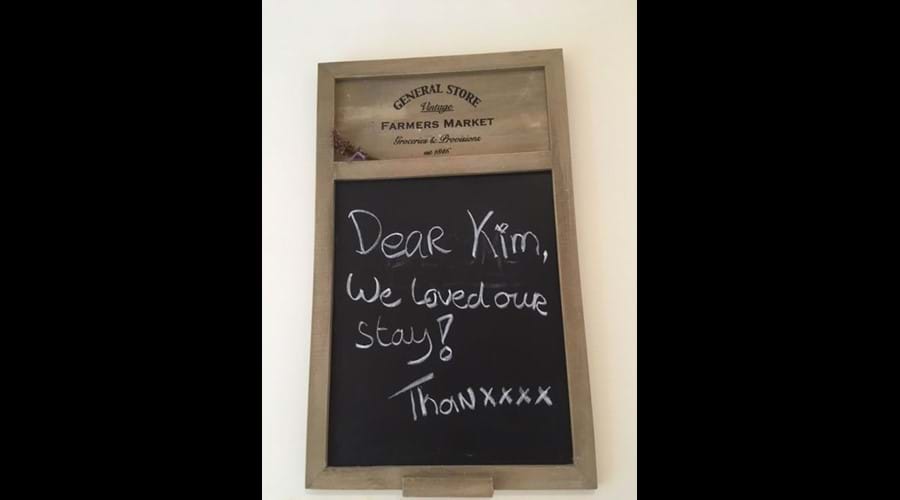 GENERAL STORE
Vintage
FARMERS MARKET
Groceries & Provisions
est 1846
Dear Kim,
We loved our
stay!
Thanxxxx